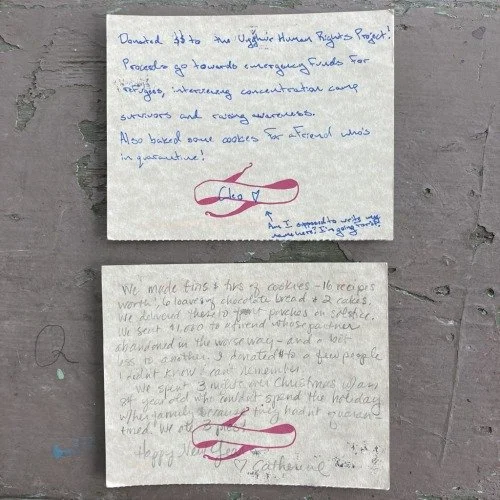 Donated $$ to the Uyghur Human Rights Project!
Proceeds go towards emergency funds for
refugees, interviewing concentration camp
survivors and raising awareness.
Also baked some cookies for a friend who's
in quarantine!
Cleo ♡
Am I supposed to write my
name here? I'm going first!
We made tins & tins of cookies - 16 recipes
worth! 6 loaves of chocolate bread & 2 cakes.
We delivered them to porches on solstice.
We sent $1,000 to a friend whose partner
abandoned in the worse way - and a bit
less to another. I donated $ to a few people
I didn't know I can't remember.
We spent 3 nights over Christmas w/ an
24 year old who couldn't spend the holiday
w/her family because they hadn't quaran-
tined! We ate
Happy New Year
♡ Catherine
2